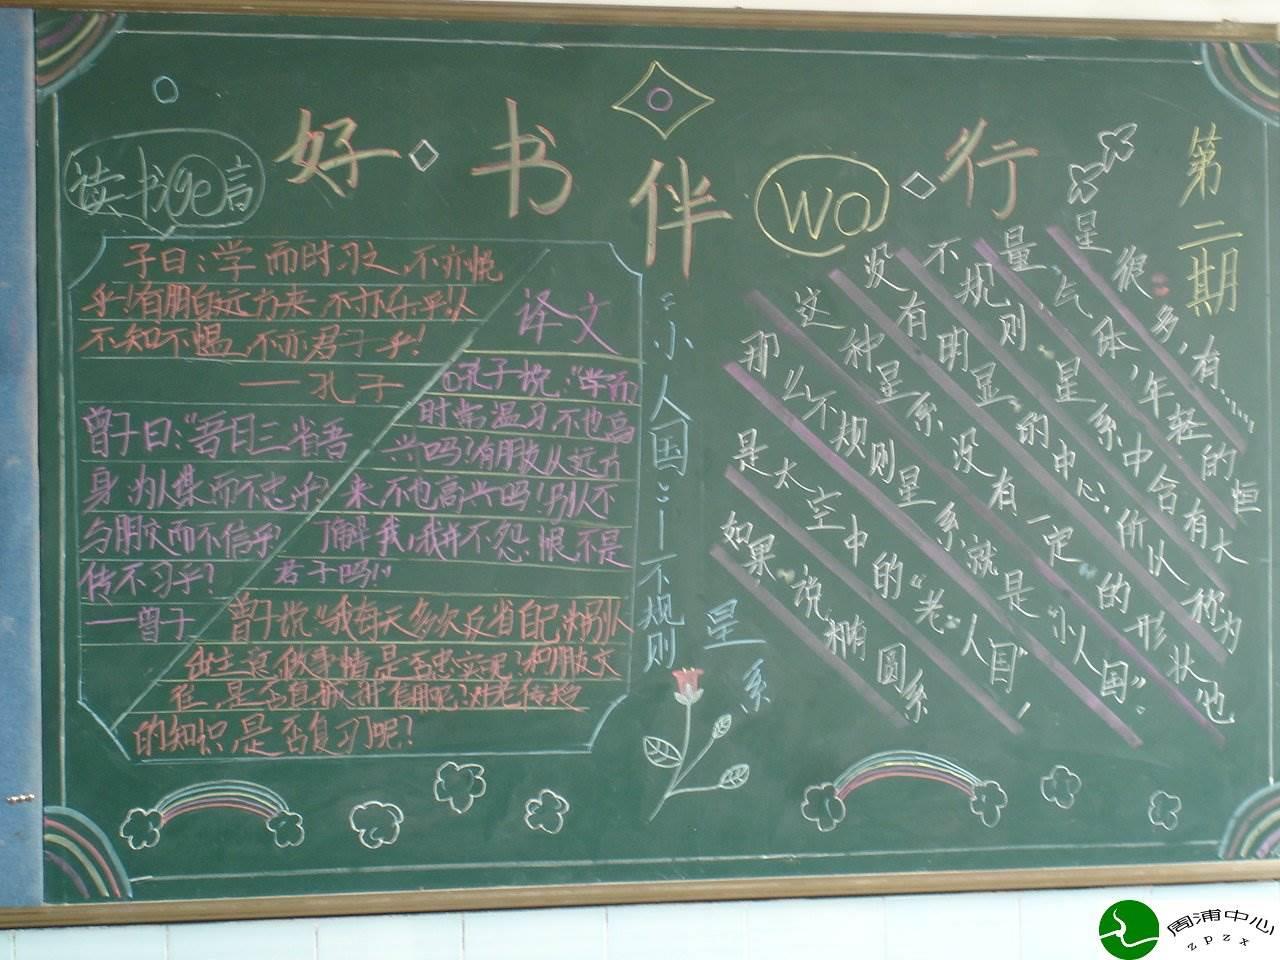 好书伴wo行
第二期
读书ge言
子曰:学而时习之,不亦悦
乎!有朋自远方来,不亦乐乎!人
不知不愠,不亦君子乎!
——孔子
曾子曰:"吾日三省吾
身,为人谋而不忠乎?
与朋交而不信乎?
传不习乎?
——曾子
译文
孔子说:"学而
时常温习不也高
兴吗?有朋友从远方
来不也高兴吗!别人不
了解我,我并不怨恨不是
君子吗!"
曾子说"我每天多次反省自己:为别人
出主意做事情是否忠实呢?和朋友交
往,是否真诚讲信用呢?对老师传授
的知识是否复习呢?
"小人国"—不规则
星系
如果说椭圆系
是太空中的"老"人国",
那么不规则星系就是"小人国"。
这种星系没有一定的形状,也
没有明显的中心,所以称为
不规则星系中含有大
量气体,年轻的恒
星很多,有……
周浦中心
zpzx